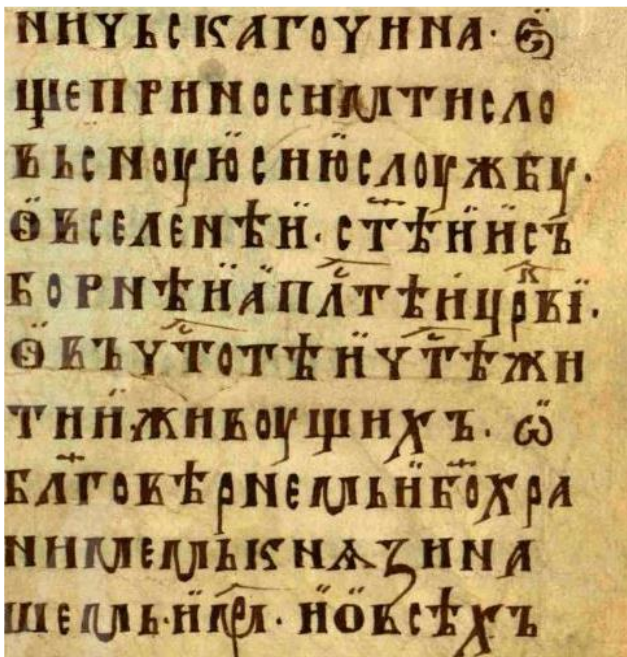 ничьскагочина· Є̈
щеприносимтисло
вьсноую̈сию̈слоужбу·
ѻ̈вселенѣӥ·ст҃ѣӥӥсъ
борнѣӥӓплⷭ҇тѣӥцрⷦ҇ві·
ѻ̈въчⷭ҇тотѣӥчⷭ҇тѣжи
тиӥ·живоущихъ· ѡ̈
бл҃говѣрнемьӥб҃охра
нимемькнѧзина
шемь·ӥмр҃к· ӥӧвсѣхъ